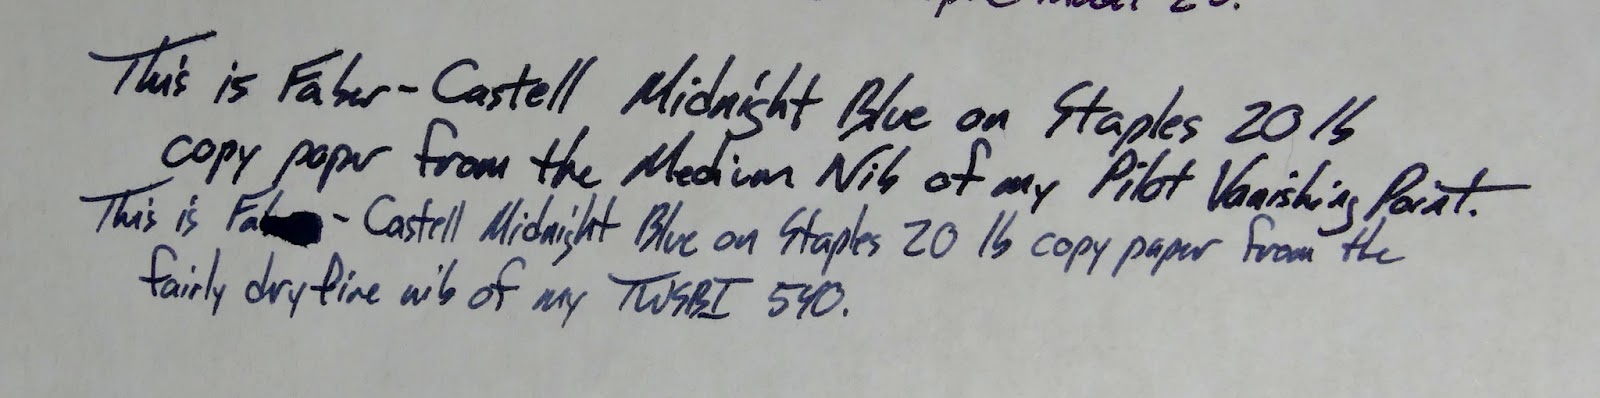 20.
This is Faber-Castell Midnight Blue on Staples 20 lb
copy paper from the Medium Nib of my Pilot Vanishing Point.
This is Fa -Castell Midnight Blue on Staples 20 lb copy paper from the
fairly dry fine nib of my TWSBI 540.